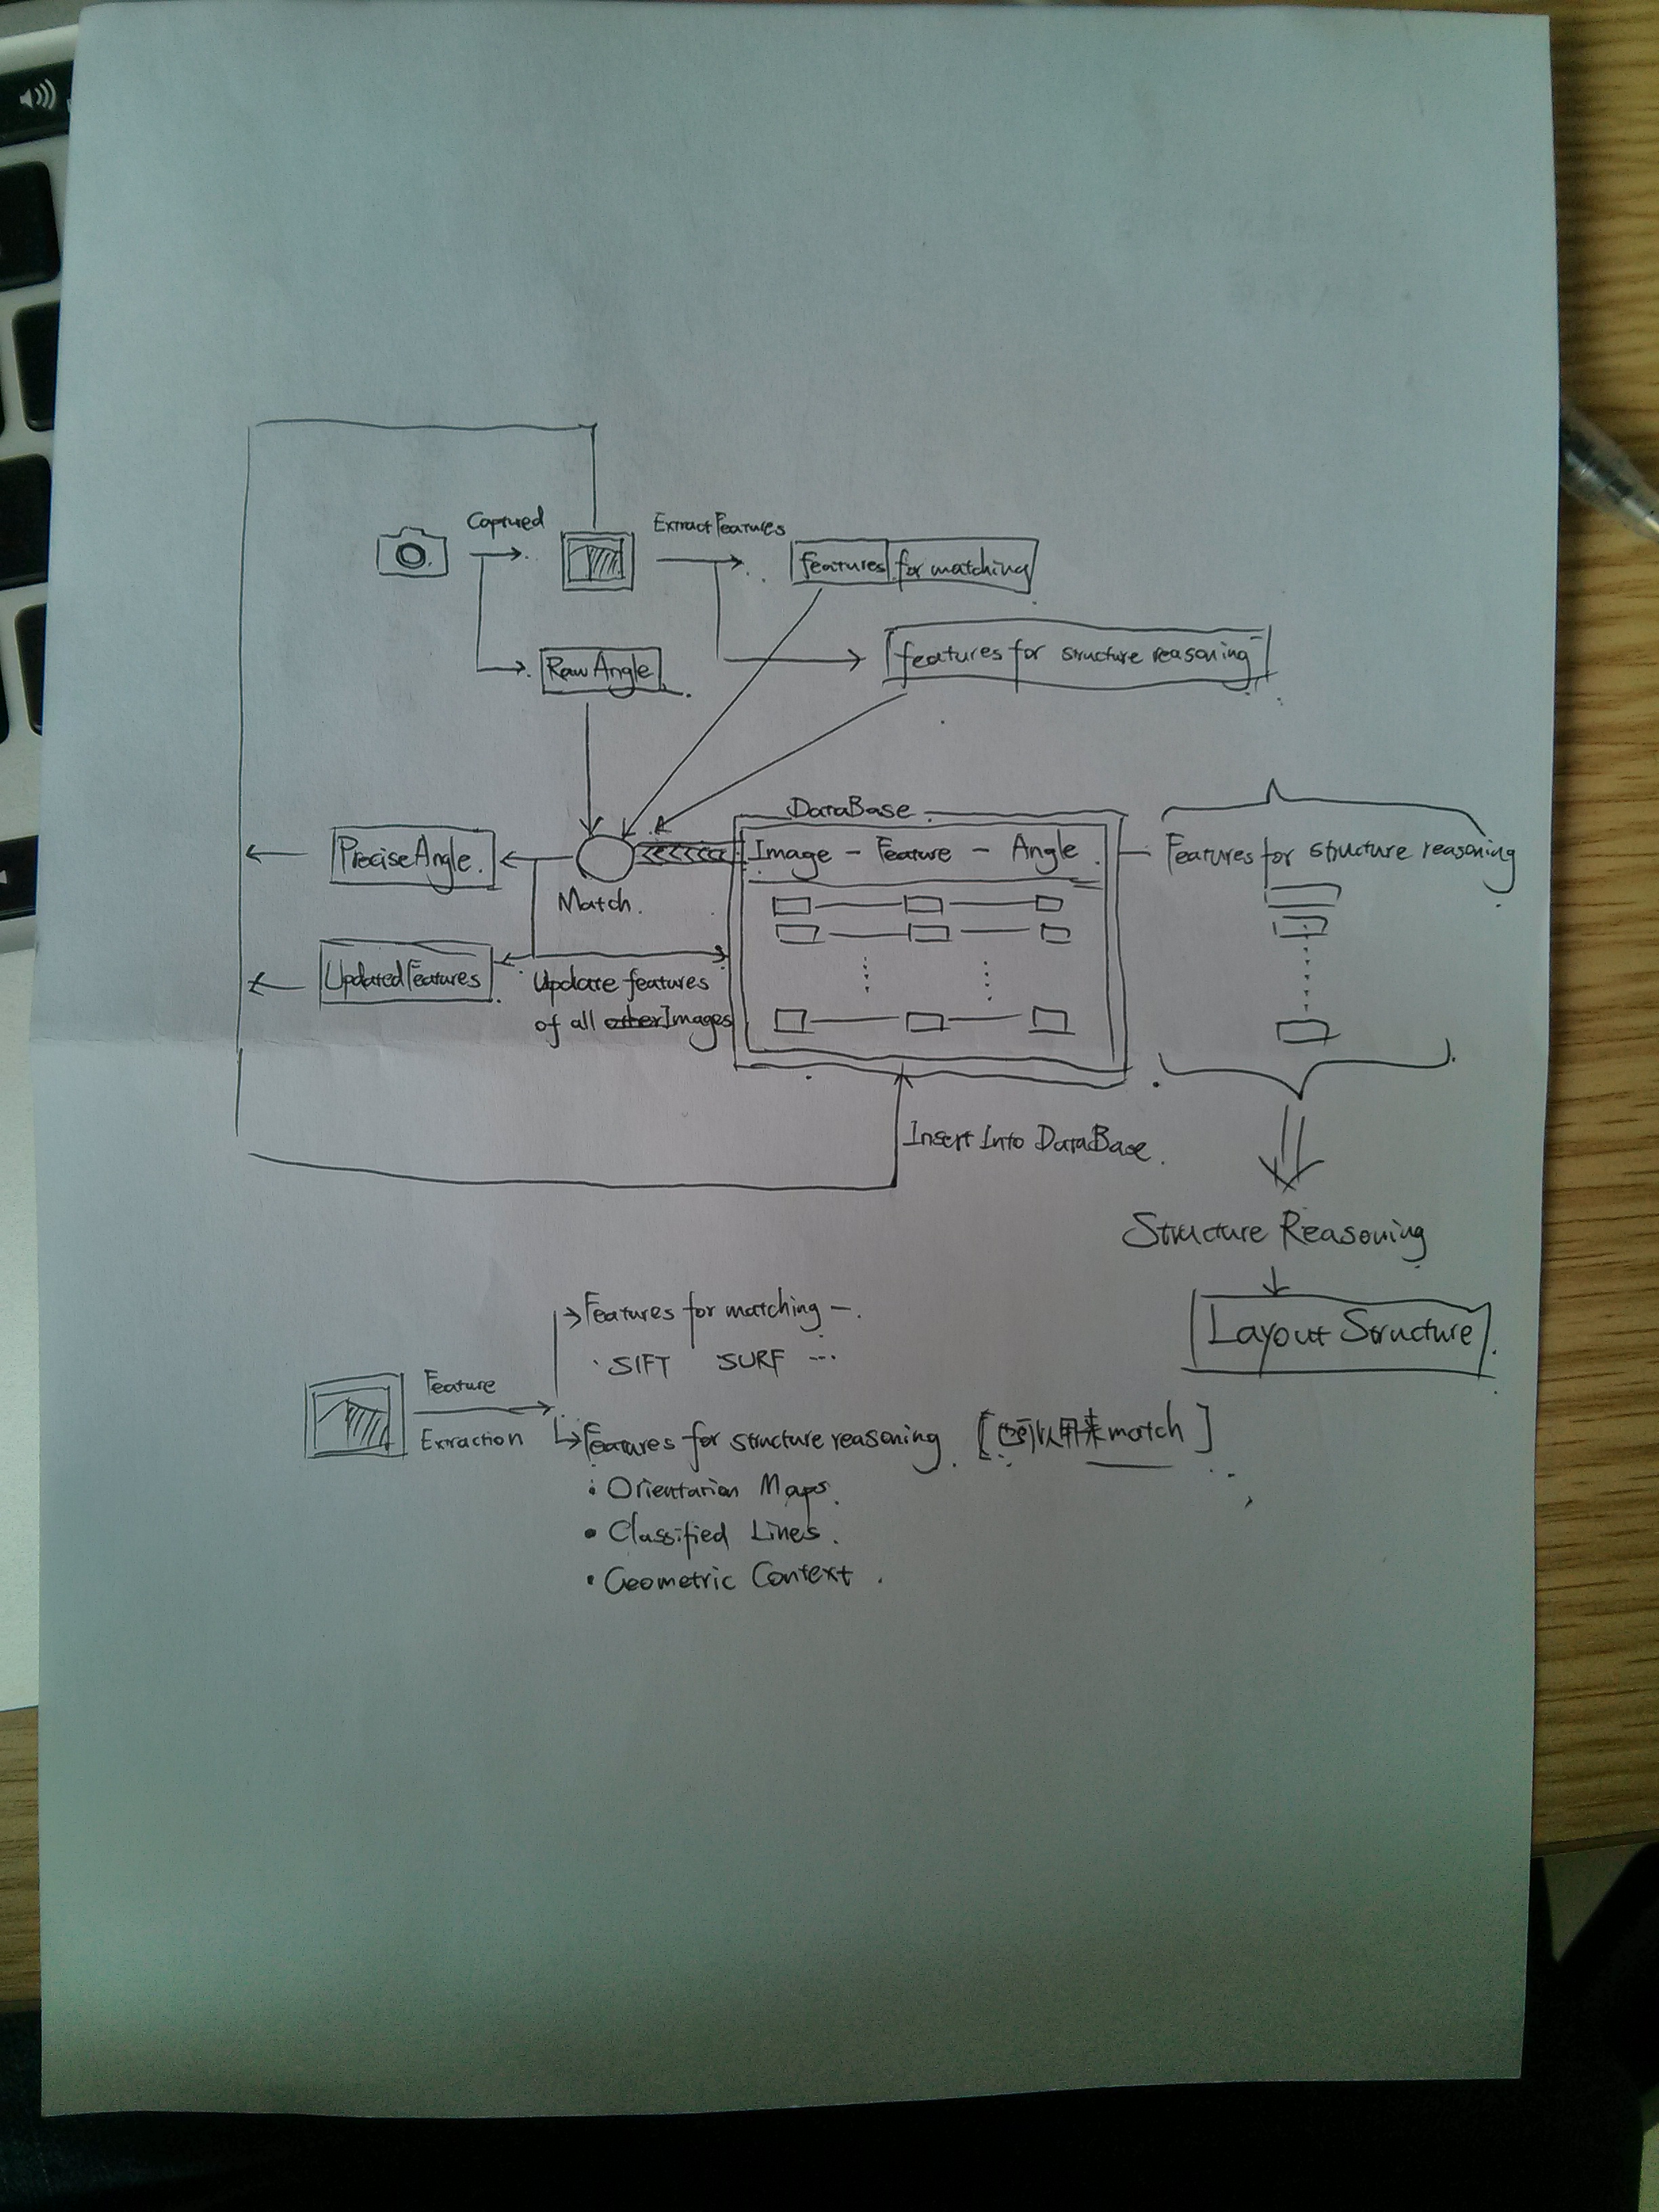 Captured
Extract Features
features for matching
Raw Angle
features for structure reasoning
DataBase
Precise Angle.
Image - Feature - Angle
Features for structure reasoning
Match.
Updated Features
Update features
of all other Images
Insert Into DataBase.
Structure Reasoning
Layout Structure
Features for matching
SIFT SURF ...
Feature
Extraction
Features for structure reasoning [也可以用来match]
• Orientation Maps.
• Classified Lines.
• Geometric Context.